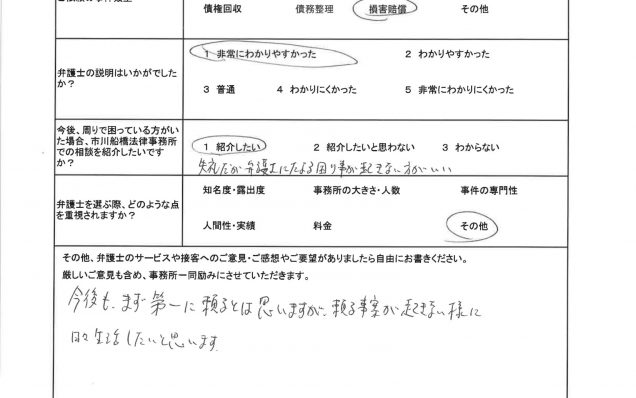 債権回収 債務整理 損害賠償 その他
弁護士の説明はいかがでした
か？
1 非常にわかりやすかった 2 わかりやすかった
3 普通 4 わかりにくかった 5 非常にわかりにくかった
今後、周りで困っている方がい
た場合、市川船橋法律事務所
での相談を紹介したいです
か？
1 紹介したい 2 紹介したいと思わない 3 わからない
失礼だが弁護士にたよる困り事が起きない方がいい
弁護士を選ぶ際、どのような点
を重視されますか？
知名度・露出度 事務所の大きさ・人数 事件の専門性
人間性・実績 料金 その他
その他、弁護士のサービスや接客へのご意見・ご感想やご要望がありましたら自由にお書きください。
厳しいご意見も含め、事務所一同励みにさせていただきます。
今後も、まず第一に頼るとは思いますが、頼る事案が起きない様に
日々生活したいと思います